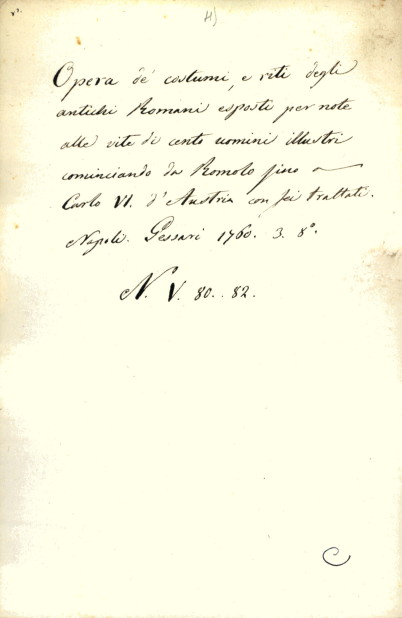 4)
Opera de' costumi, e riti degli
antichi Romani esposti per note
alle vite di cento uomini illustri
cominciando da Romolo fino a
Carlo VI. d'Austria con sei trattati.
Napoli. Gessari 1760. 3. 8°.
N. V. 80.. 82.
C